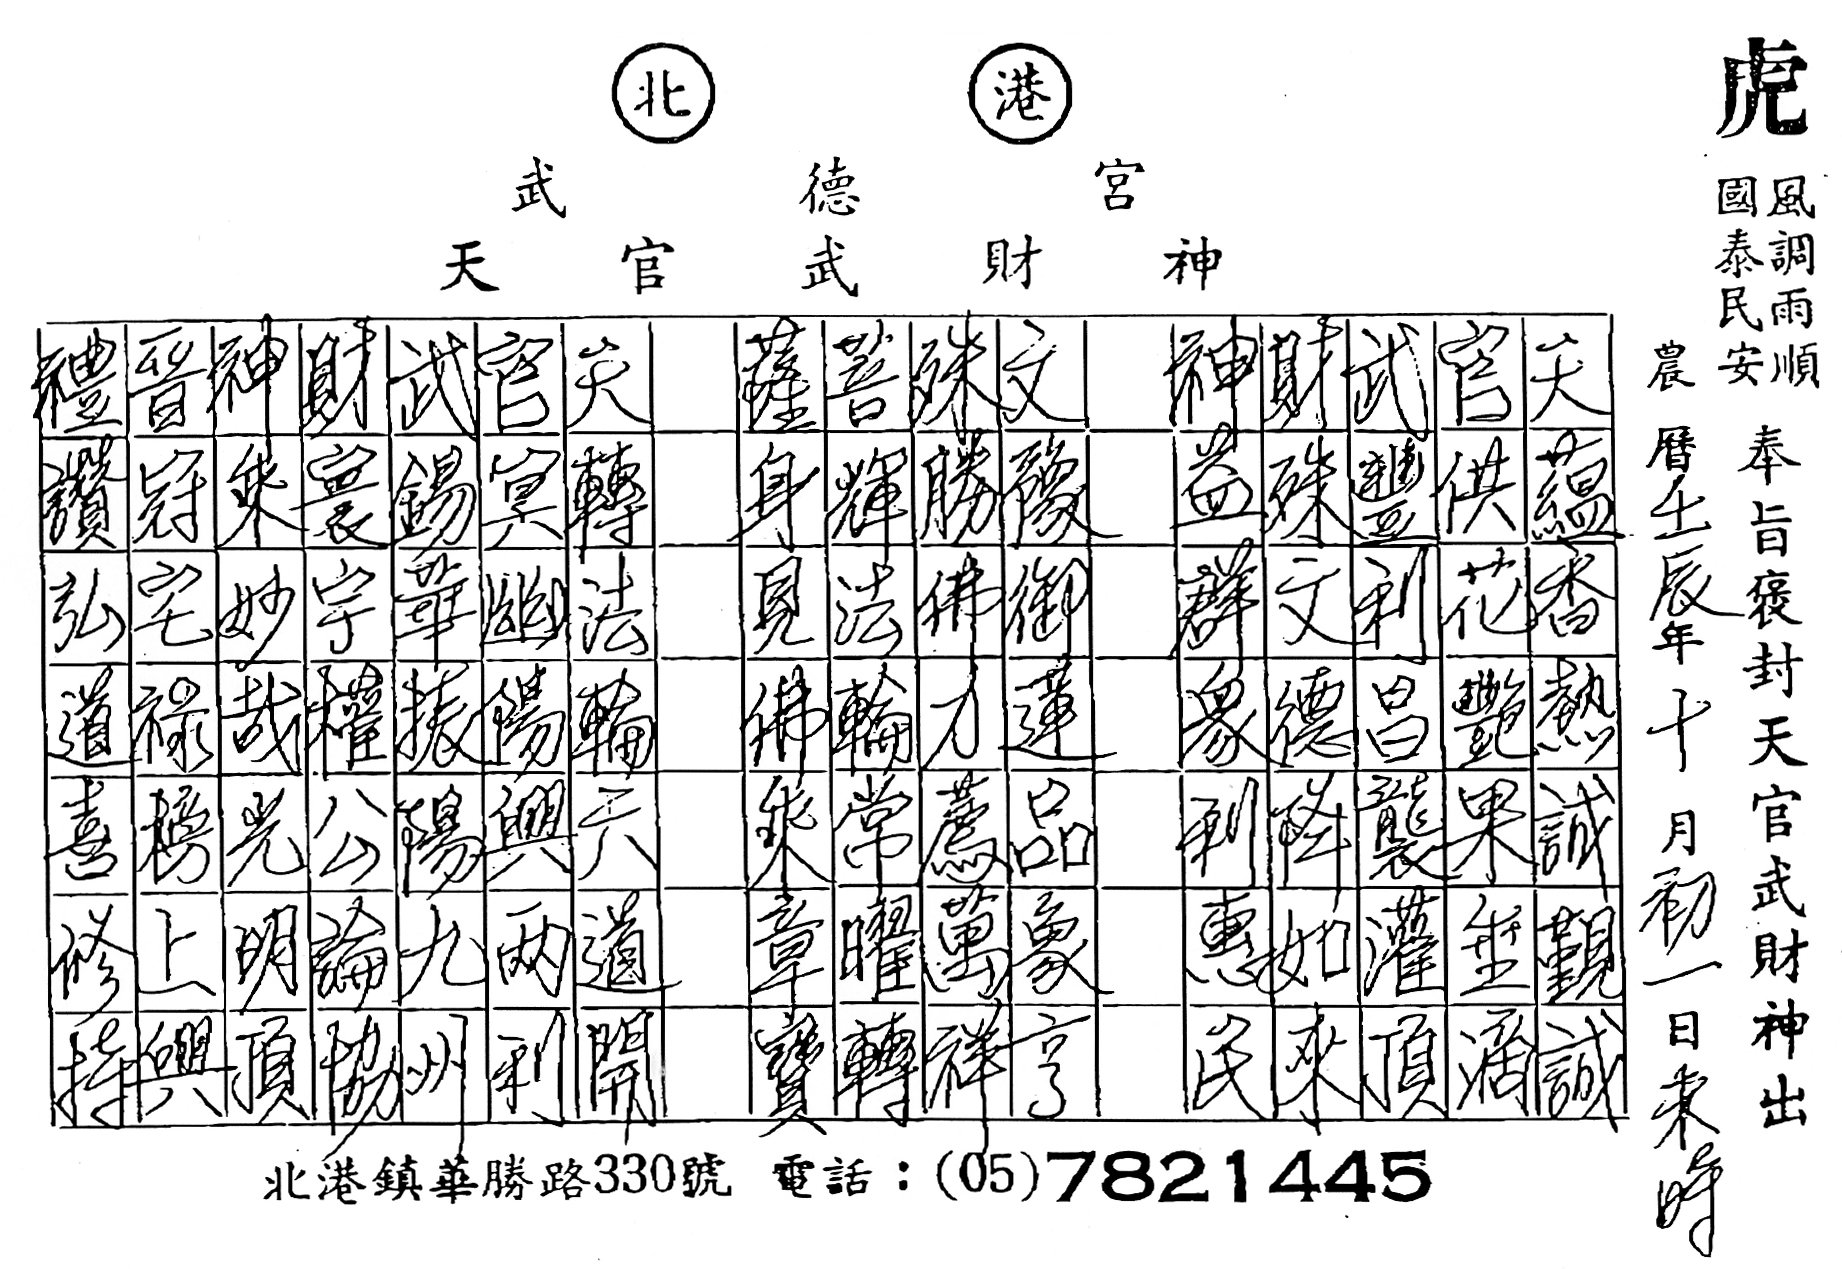 北港
武德宮
天官武財神
虎
風調雨順
國泰民安
奉旨褒封天官武財神出
農曆壬辰年十月初一日未時
天蘊香熱誠觀誠
官供花艷果生滿
武豐利昌襲灌頂
財殊文德降如來
神益群眾利惠民
文豫御蓮品象亨
殊勝佛力薦萬祥
菩輝法輪常曜轉
薩身見佛乘章寶
天轉法輪天道開
官冥幽陽興兩利
武錫華振揚九州
財寰宇權公論協
神乘妙哉光明頂
晉冠宅祿榜上興
禮讚弘道喜修持
北港鎮華勝路330號 電話：(05)7821445